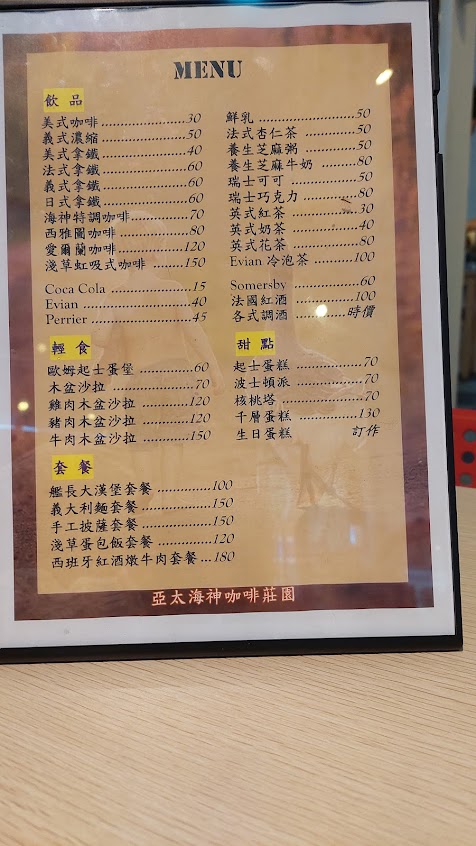 MENU
飲品
美式咖啡 30
義式濃縮 50
美式拿鐵 40
法式拿鐵 60
義式拿鐵 60
日式拿鐵 60
海神特調咖啡 70
西雅圖咖啡 80
愛爾蘭咖啡 120
淺草虹吸式咖啡 150
Coca Cola 15
Evian 40
Perrier 45
鮮乳 50
法式杏仁茶 50
養生芝麻粥 50
養生芝麻牛奶 80
瑞士可可 50
瑞士巧克力 80
英式紅茶 30
英式奶茶 40
英式花茶 80
Evian 冷泡茶 100
Somersby 60
法國紅酒 100
各式調酒 時價
輕食
歐姆起士蛋堡 60
木盆沙拉 70
雞肉木盆沙拉 120
豬肉木盆沙拉 120
牛肉木盆沙拉 150
甜點
起士蛋糕 70
波士頓派 70
核桃塔 70
千層蛋糕 130
生日蛋糕 訂作
套餐
艦長大漢堡套餐 100
義大利麵套餐 150
手工披薩套餐 150
淺草蛋包飯套餐 120
西班牙紅酒燉牛肉套餐 180
亞太海神咖啡莊園